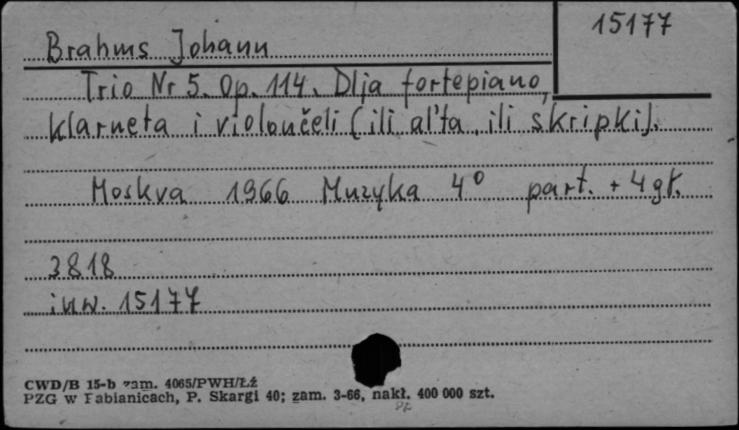 15177
Brahms Johann
Trio Nr 5. Op. 114. Dlja fortepiano,
klarneta i violončeli (ili al'ta, ili skripki).
Moskva 1966 Muzyka 4° part. + 4 gł.
3818
inw. 15177
CWD/B 15-b zam. 4065/PWH/Łź
PZG w Pabianicach, P. Skargi 40; zam. 3-66, nakł. 400 000 szt.